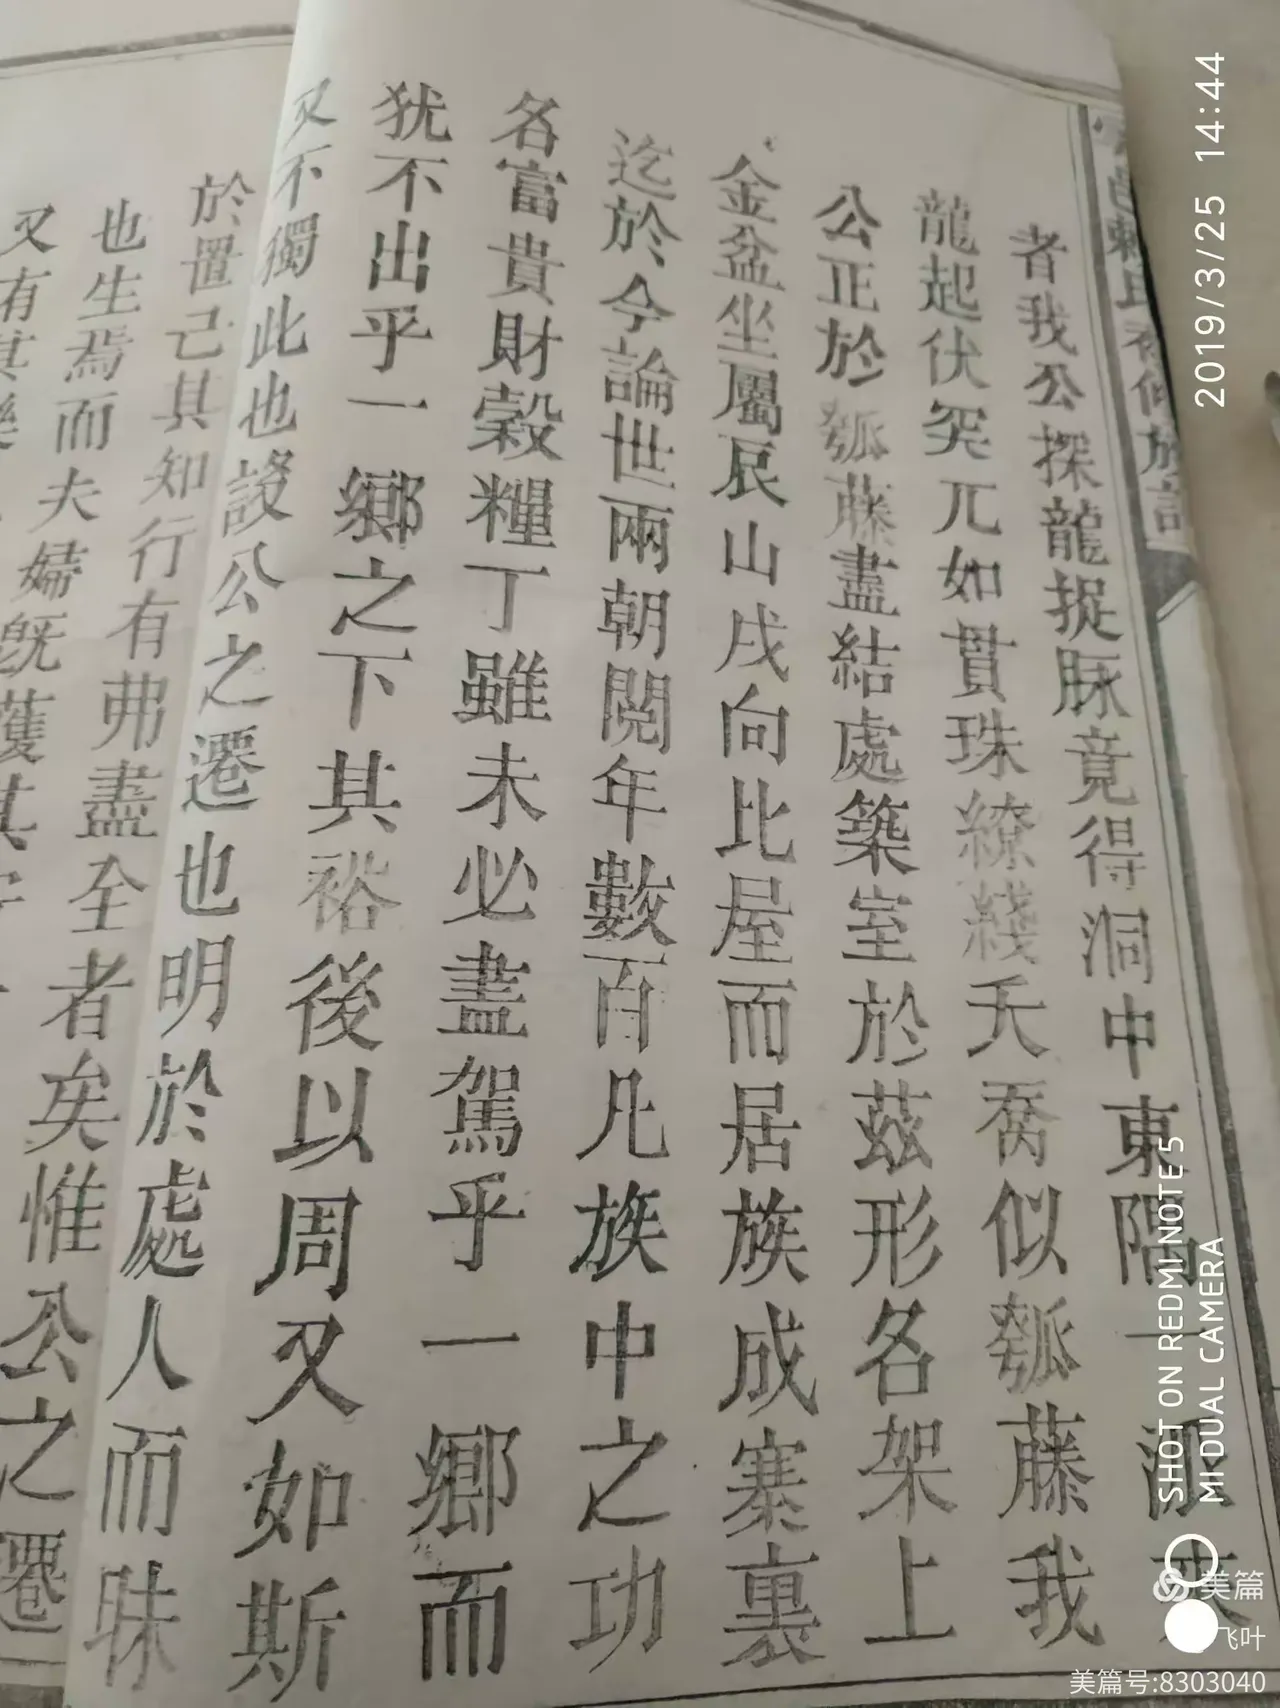 賴氏
族記
者我公探龍捉脉竟得洞中東隅一派來
龍起伏突兀如貫珠繚綫夭喬似瓠藤我
公正於瓠藤盡結處築室於茲形名架上
金盆坐屬辰山戌向比屋而居族成寨裏
迄於今論世兩朝閱年數百凡族中之功
名富貴財穀糧丁雖未必盡駕乎一鄉而
犹不出乎一鄉之下其裕後以周又如斯
又不獨此也設公之遷也明於處人而昧
於置己其知行有弗盡全者矣惟公之遷
也生焉而夫婦既獲其
又有其樂
2019/3/25 14:44
SHOT ON REDMI NOTE 5
MI DUAL CAMERA
美篇
飞叶
美篇号:8303040